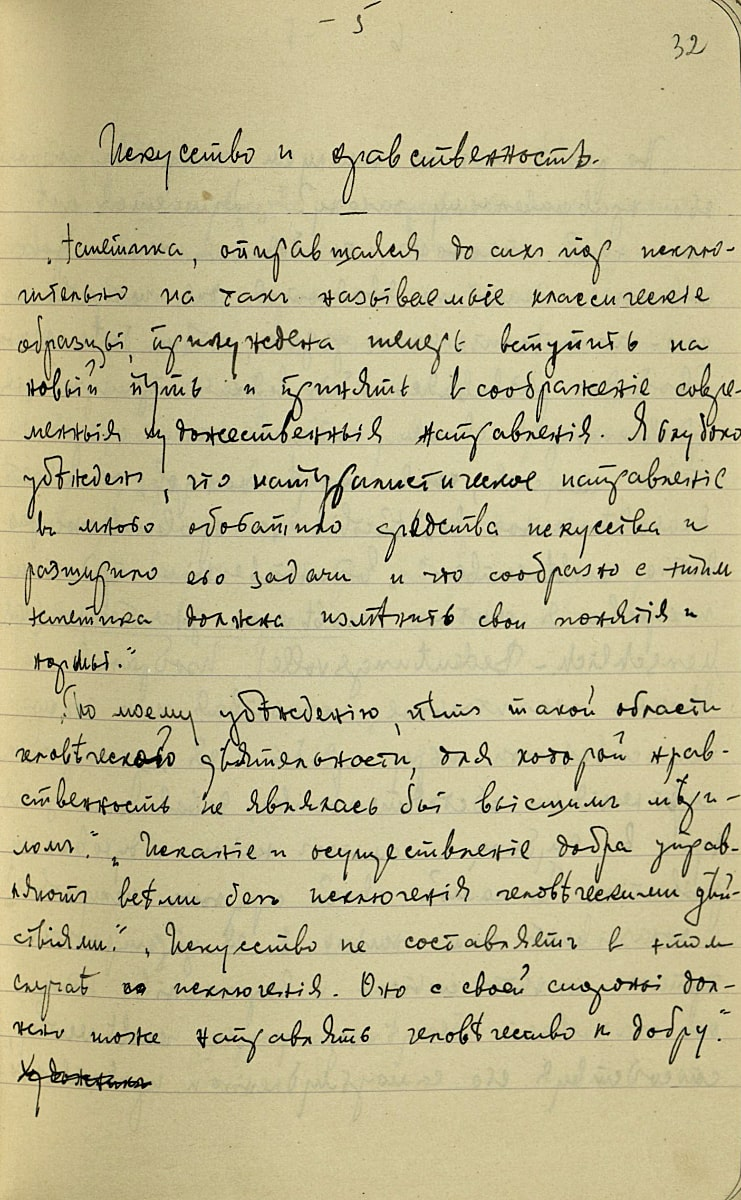 - 5
32
Искусство и нравственность.
„Эстетика, опиравшаяся до сихъ пор исклю-
чительно на такъ называемые классическіе
образцы, принуждена теперь вступить на
новый путь и принять в соображеніе совре-
менныя художественныя направленія. Я глубоко
убѣжденъ, что натуралистическое направленіе
въ много обогатило средства искусства и
расширило его задачи и что сообразно с этим
эстетика должна измѣнить свои понятія и
нормы.“
„По моему убѣжденію, нѣтъ такой области
человѣческой дѣятельности, для которой нрав-
ственность не являлась бы высшимъ мѣри-
ломъ.“ „Исканіе и осуществленіе добра управ-
ляютъ всѣми безъ исключенія человѣческими дѣй-
ствіями.“ „Искусство не составляетъ в этом
случаѣ исключенія. Оно с своей стороны дол-
жно тоже направлять человѣчество к добру.“
Художника